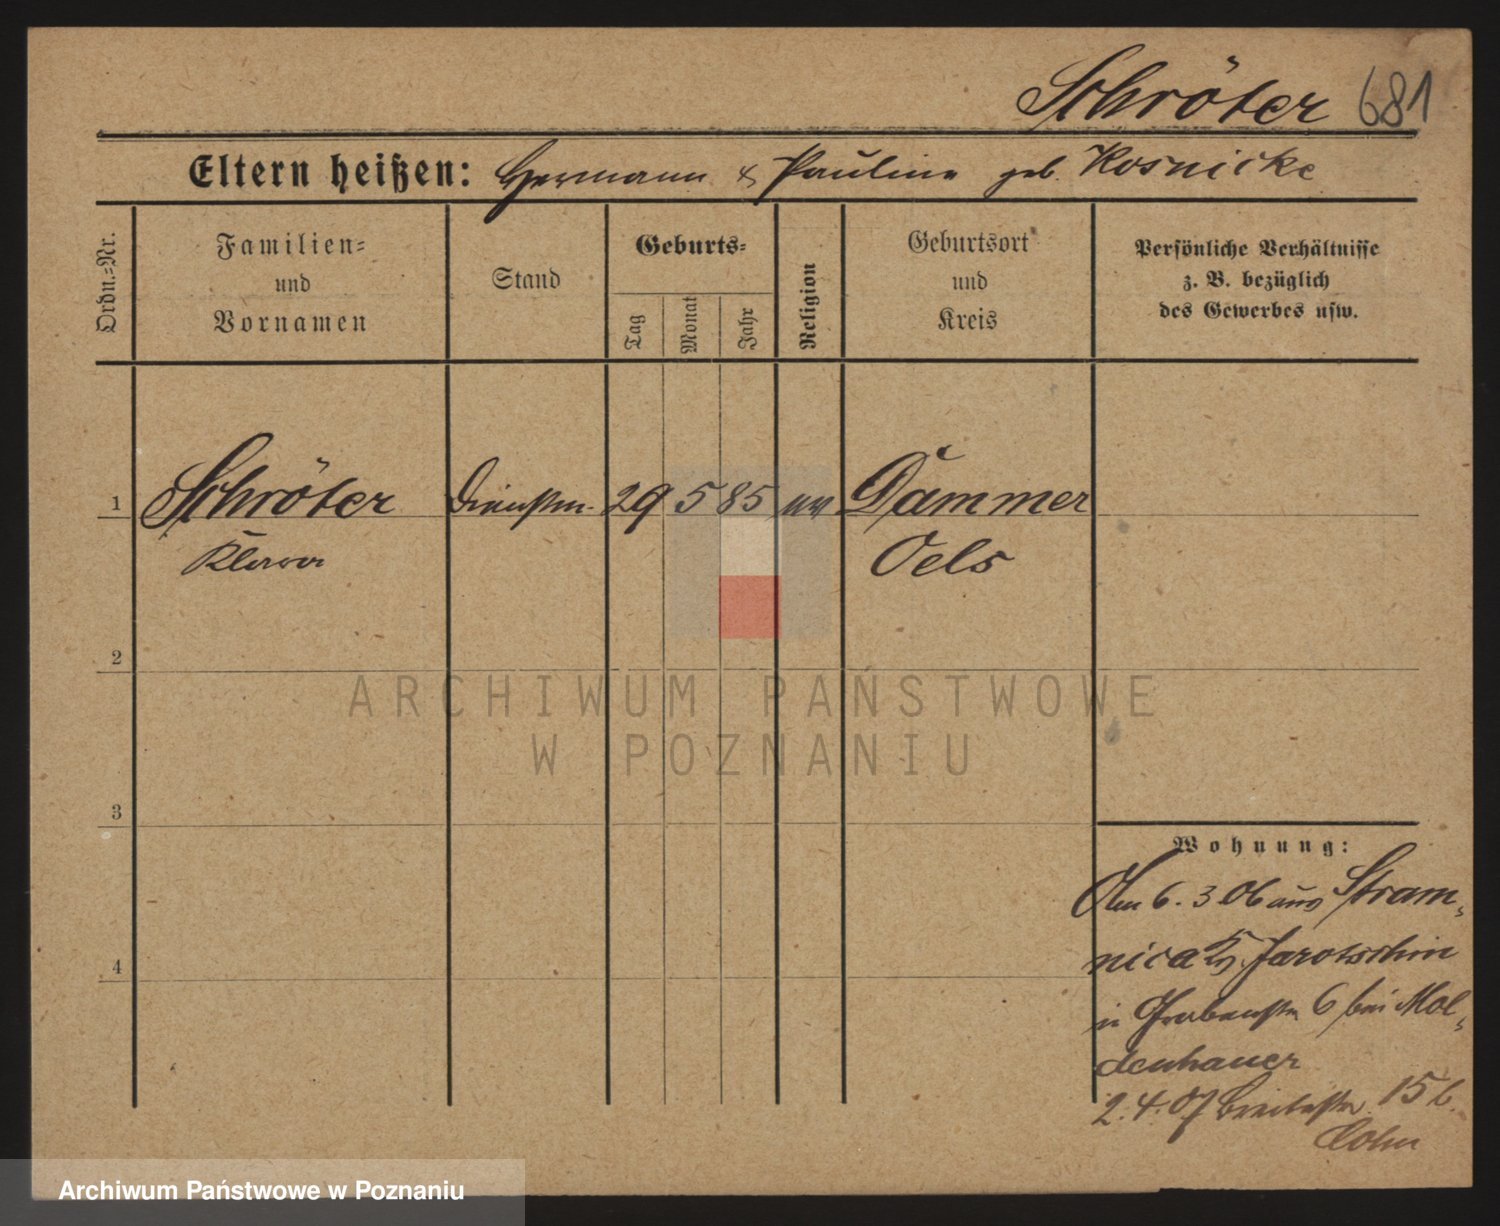 Schröter 681
Eltern heißen: Hermann & Pauline geb. Kosnicke
Ordn.-Nr.
Familien-
und
Vornamen
Stand
Geburts-
Tag
Monat
Jahr
Religion
Geburtsort
und
Kreis
Persönliche Verhältnisse
z. B. bezüglich
des Gewerbes usw.
1 Schröter Dienstm. 29 5 85 ev Dammer
Klara Oels
2
ARCHIWUM PAŃSTWOWE
W POZNANIU
3
Wohnung:
6. 3 06 aus Stram-
nica Jarotschin
in Grabenstr 6 bei Mol-
denhauer
2. 4. 07 Breitestr. 15 b.
Cohn
4
Archiwum Państwowe w Poznaniu